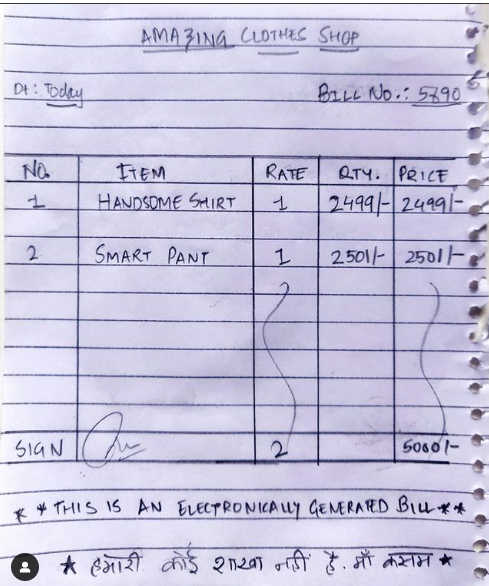 AMAZING CLOTHES SHOP
Dt: Today BILL NO.: 5890
NO. ITEM RATE QTY. PRICE
1 HANDSOME SHIRT 1 2499/- 2499/-
2 SMART PANT 1 2501/- 2501/-
SIGN 2 5000/-
* * THIS IS AN ELECTRONICALLY GENERATED BILL * *
* हमारी कोई शाखा नहीं है. माँ कसम *